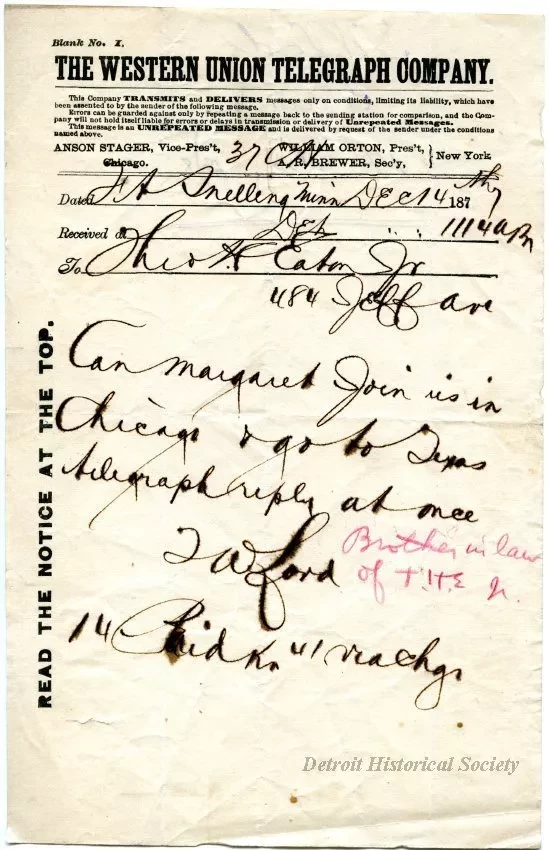 Blank No. 1.
THE WESTERN UNION TELEGRAPH COMPANY.
This Company TRANSMITS and DELIVERS messages only on conditions, limiting its liability, which have
been assented to by the sender of the following message.
Errors can be guarded against only by repeating a message back to the sending station for comparison, and the Com-
pany will not hold itself liable for errors or delays in transmission or delivery of Unrepeated Messages.
This message is an UNREPEATED MESSAGE and is delivered by request of the sender under the conditions
named above.
ANSON STAGER, Vice-Pres't, WILLIAM ORTON, Pres't,
Chicago. 37 A. R. BREWER, Sec'y, New York
Dated Ft Snelling Minn Dec 14 187
Received at Det 1114 am
To Theo H Eaton Jr
484 Jeff ave
Can Margaret Join us in
Chicago & go to Texas
telegraph reply at once
T W Lord
Brother in law
of T.H.E Jr.
14 Paid Kn 41 via chgo
READ THE NOTICE AT THE TOP.
Detroit Historical Society